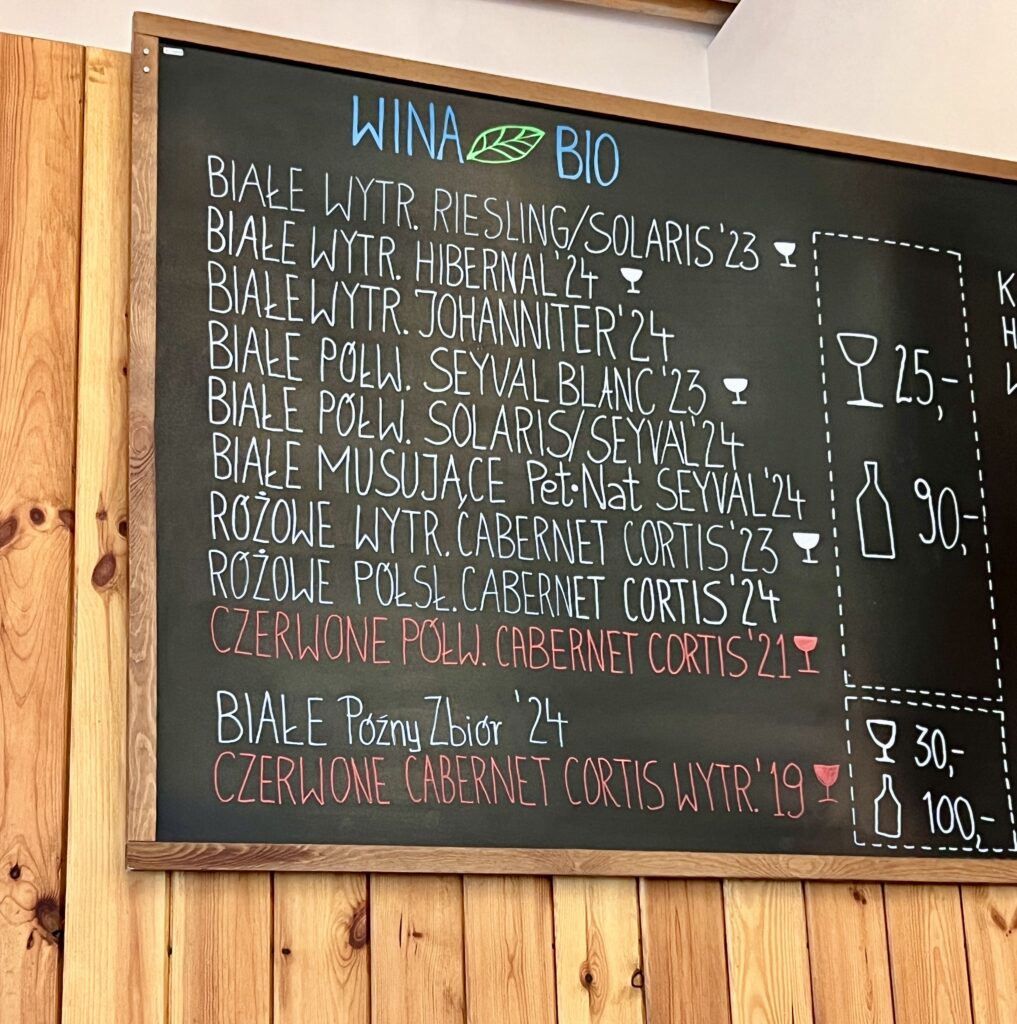 WINA BIO
BIAŁE WYTR. RIESLING/SOLARIS '23
BIAŁE WYTR. HIBERNAL '24
BIAŁE WYTR. JOHANNITER '24
BIAŁE PÓŁW. SEYVAL BLANC '23
BIAŁE PÓŁW. SOLARIS/SEYVAL '24
BIAŁE MUSUJĄCE Pet·Nat SEYVAL '24
RÓŻOWE WYTR. CABERNET CORTIS '23
RÓŻOWE PÓŁSŁ. CABERNET CORTIS '24
CZERWONE PÓŁW. CABERNET CORTIS '21
25,-
90,-
BIAŁE Późny Zbiór '24
CZERWONE CABERNET CORTIS WYTR. '19
30,-
100,-